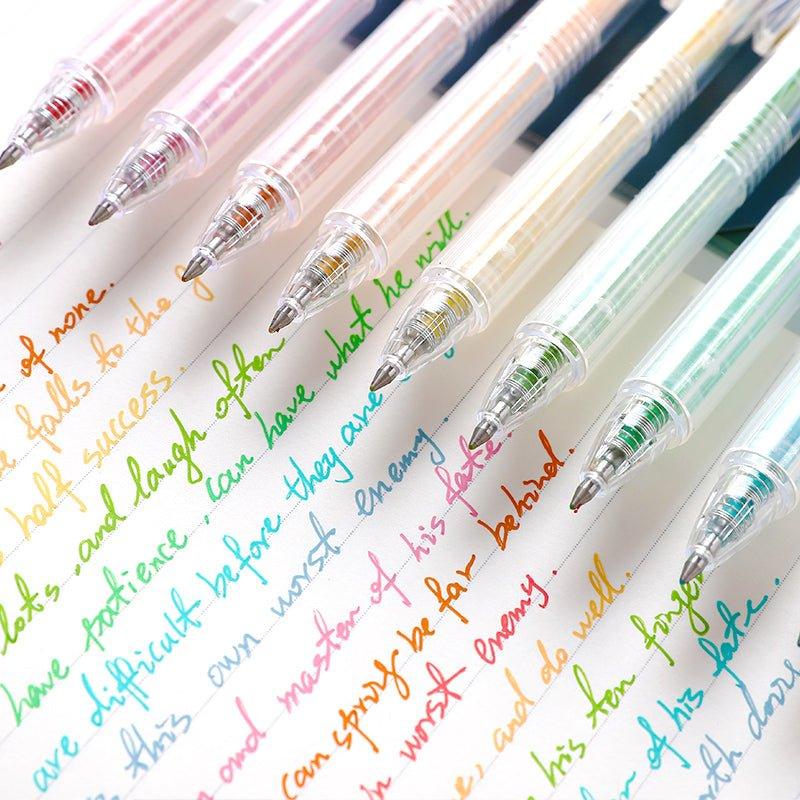 of none.
falls to the g
half success.
lots, and laugh often
have patience, can have what he will.
are difficult before they are
this own worst enemy.
and master of his fate.
can spring be far behind.
worst enemy.
, and do well.
his ten finger
of his fate.